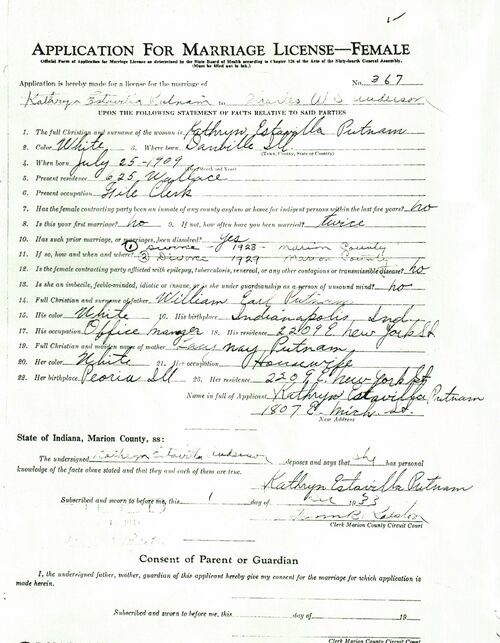 APPLICATION FOR MARRIAGE LICENSE—FEMALE
Official Form of Application for Marriage License as determined by the State Board of Health according to Chapter 126 of the Acts of the Sixty-fourth General Assembly.
(Must be filled out in ink.)
Application is hereby made for a license for the marriage of No. 367
Kathryn Estavilla Putnam to Charles W Anderson
UPON THE FOLLOWING STATEMENT OF FACTS RELATIVE TO SAID PARTIES
1. The full Christian and surname of the woman is Kathryn Estavilla Putnam
2. Color White 3. Where born Danville Ill.
(Town, County, State or Country)
4. When born July 25-1909
5. Present residence 625, Wallace
6. Present occupation File Clerk
7. Has the female contracting party been an inmate of any county asylum or home for indigent persons within the last five years? no
8. Is this your first marriage? no 9. If not, how often have you been married? twice
10. Has such prior marriage, or marriages, been dissolved? Yes
11. If so, how and when and where? ① Divorce 1928 - Marion County
② Divorce 1929 Marion County
12. Is the female contracting party afflicted with epilepsy, tuberculosis, venereal, or any other contagious or transmissible disease? no
13. Is she an imbecile, feeble-minded, idiotic or insane, or is she under guardianship as a person of unsound mind? no
14. Full Christian and surname of father William Earl Putnam
15. His color White 16. His birthplace Indianapolis, Ind
17. His occupation Office manger 18. His residence 2209 E. New York St
19. Full Christian and maiden name of mother May Putnam
20. Her color White 21. Her occupation Housewife
22. Her birthplace Peoria Ill 23. Her residence 2209 E. New York St
Name in full of Applicant Kathryn Estavilla Putnam
1807 E. Mich. St.
New Address
State of Indiana, Marion County, ss:
The undersigned Kathryn Estavilla Anderson deposes and says that she has personal
knowledge of the facts above stated and that they and each of them are true.
Kathryn Estavilla Putnam
Subscribed and sworn to before me, this 1 day of Dec 1933
Clerk Marion County Circuit Court
Consent of Parent or Guardian
I, the undersigned father, mother, guardian of this applicant hereby give my consent for the marriage for which application is
made herein.
Subscribed and sworn to before me, this day of 19
Clerk Marion County Circuit Court